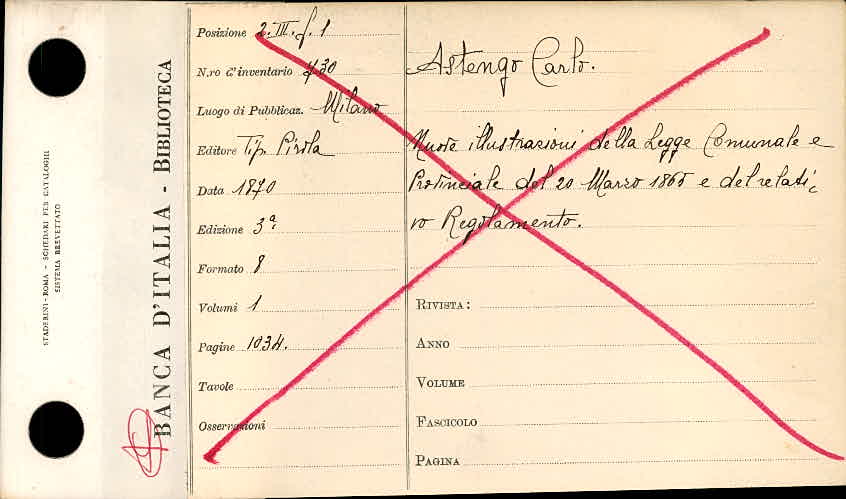 STADERINI - ROMA - SCHEDARI PER CATALOGHI
SISTEMA BREVETTATO
BANCA D'ITALIA - BIBLIOTECA
Posizione 2. III. f. 1
N.ro d'inventario 730
Luogo di Pubblicaz. Milano
Editore Tip. Pirola
Data 1870
Edizione 3ª.
Formato 8
Volumi 1
Pagine 1034.
Tavole
Osservazioni
Astengo Carlo.
Nuove illustrazioni della Legge Comunale e
Provinciale del 20 Marzo 1865 e del relati,
vo Regolamento.
RIVISTA:
ANNO
VOLUME
FASCICOLO
PAGINA